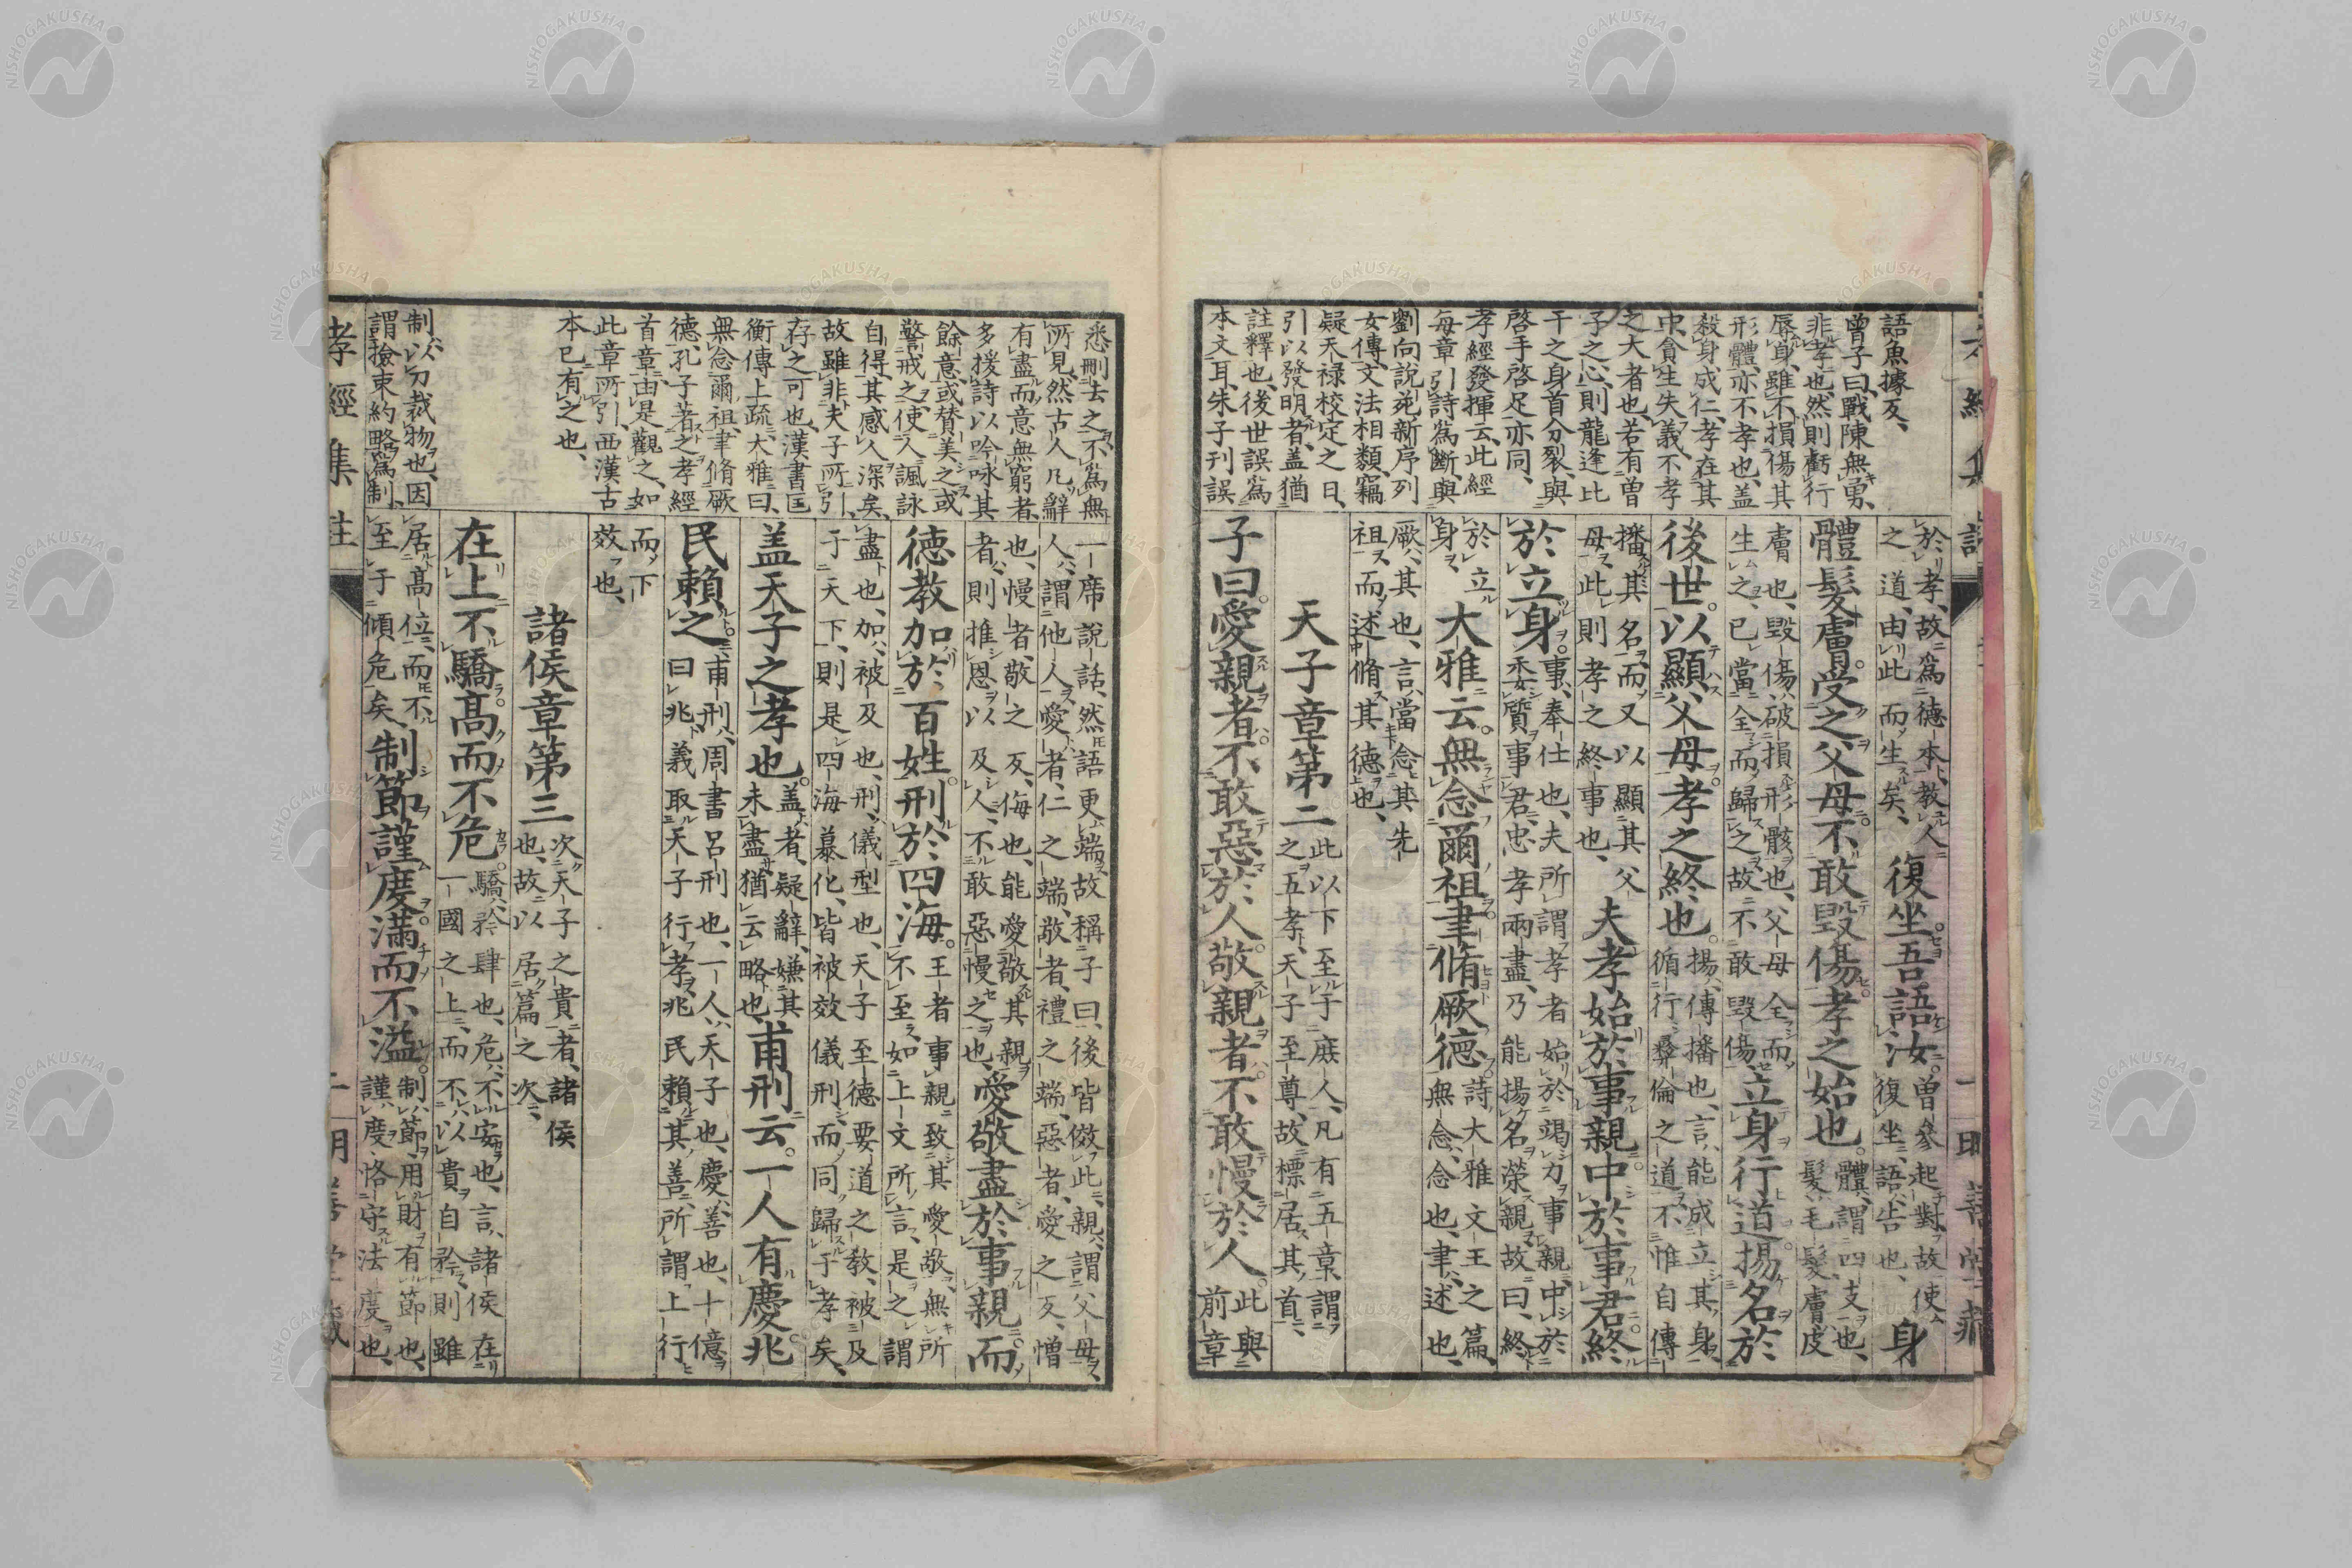 語魚據反、
曾子曰、戰陳無勇、
非孝也、然則虧行
辱身、雖不損傷其
形體、亦不孝也、蓋
殺身成仁、孝在其
中、貪生失義、不孝
之大者也、若有曾
子之心、則龍逢比
干之身首分裂、與
啓手啓足亦同、
孝經發揮云、此經
每章引詩爲斷、與
劉向說苑新序列
女傳、文法相類、竊
疑天祿校定之日、
引以發明者、蓋猶
註釋也、後世誤爲
本文耳、朱子刊誤
於孝、故爲德本、教人
之道、由此而生矣、
復坐吾語汝
曾參起對、故使
復坐、語、告也、
身
體髮膚受之父母不敢毀傷孝之始也
體、謂四支也、
髮、毛髮、膚、皮
膚也、毀傷、破損形骸也、父母全而
生之、己當全而歸之、故不敢毀傷、
立身行道揚名於
後世以顯父母孝之終也
揚、傳播也、言、能成立其身、
循行彝倫之道、不惟自傳
播其名、而又以顯其父
母、此則孝之終事也、
夫孝始於事親中於事君終
於立身
事、奉仕也、夫所謂孝者、始於竭力事親、中於
委質事君、忠孝兩盡、乃能揚名榮親、故曰、終
於立
身、
大雅云無念爾祖聿脩厥德
詩大雅文王之篇、
無念、念也、聿、述也、
厥、其也、言、當念其先
祖、而述脩其德也、
天子章第二
此以下至于庶人、凡有五章、謂
之五孝、天子至尊、故標居其首、
子曰愛親者不敢惡於人敬親者不敢慢於人
此與
前章
悉刪去之、不爲無
所見、然古人凡辭
有盡而意無窮者、
多援詩以吟咏其
餘意、或贊美之、或
警戒之、使人諷詠
自得、其感人深矣、
故雖非夫子所引、
存之可也、漢書匡
衡傳上疏、大雅曰、
無念爾祖、聿脩厥
德、孔子著之孝經
首章、由是觀之、如
此章所引、西漢古
本已有之也、
制、以刀裁物也、因
謂撿束約略爲制、
一席說話、然語更端、故稱子曰、後皆倣此、親、謂父母、
人、謂他人、愛者、仁之端、敬者、禮之端、惡者、愛之反、憎
也、慢者、敬之反、侮也、能愛敬其親
者、則推恩以及人、不敢惡慢之也、
愛敬盡於事親而
德教加於百姓刑於四海
王者事親、致其愛敬、無所
不至、如上文所言、是之謂
盡也、加、被及也、刑、儀型也、天子至德要道之教、被及
于天下、則是四海慕化、皆被效儀刑、而同歸于孝矣、
蓋天子之孝也
蓋者、疑辭、嫌其
未盡、猶云略也、
甫刑云一人有慶兆
民賴之
甫刑、周書呂刑也、一人、天子也、慶、善也、十億
曰兆、義取天子行孝、兆民賴其善、所謂上行
而下
效也、
諸侯章第三
次天子之貴者、諸侯
也、故以居篇之次、
在上不驕高而不危
驕、矜肆也、危、不安也、言、諸侯在
一國之上、而不以貴自矜、則雖
居高位、而不
至于傾危矣、
制節謹度滿而不溢
制節、用財有節也、
謹度、恪守法度也、
孝經集註